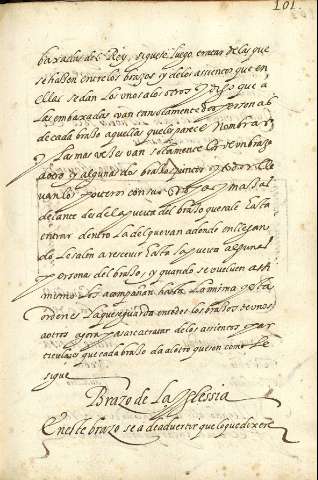 101.
baxadas del Rey, siguese luego tratar de las que
se hazen entre los brazos y de los assientos que en
ellas se dan los unos a los otros y digo que a
las embaxadas van tan solamente personas
de cada brazo aquellas que les parece nombrar
y las mas vezes van solamente los de un brazo
a otro y algunas dos brazos juntos y todos lle
van los porteros con sus y massas
delante desde la puerta del brazo que sale hasta
entrar dentro la del que van a donde
do le salen a rescevir hasta la puerta algunas
personas del brazo, y quando se vuelven assi
mismo los acompañan hasta la misma y esta
orden es la que se guarda entre los brazos de unos
a otros agora passare a tratar de los assientos y ar
ticulares que cada brazo da al otro que son como se
sigue
Brazo de La Yglessia
En este brazo se a de advertir que lo que dixere